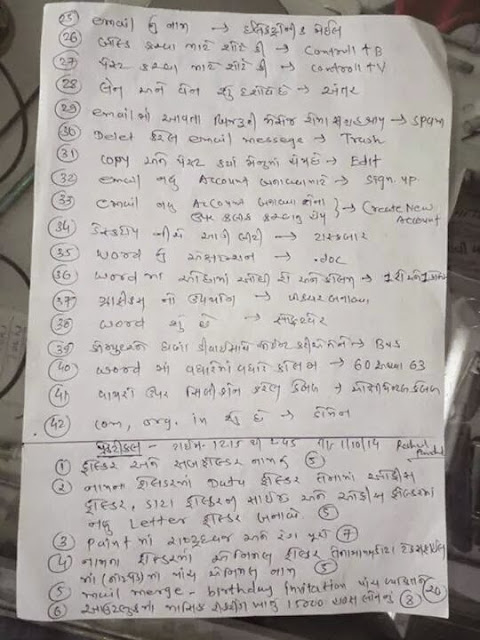 25 email નું નામ → ઈલેક્ટ્રોનિક મેઈલ
26 બોલ્ડ કરવા માટે શોર્ટ કી → Control + B
27 પેસ્ટ કરવા માટે શોર્ટ કી → Controll + V
28 લેન અને વેન શું દર્શાવે છે → અંતર
29 email માં આવતા બિનજરૂરી મેસેજ શેમા સંગ્રહ થાય → spam
30 Delet કરેલ email message → Trash
31 copy અને પેસ્ટ કયાં મેનુમાં હોય છે → Edit
32 email નવુ Account બનાવવા માટે → sign up
33 email નવુ Account બનાવવા શેના ઉપર ક્લીક કરવાનું હોય } → Create New Account
34 ડેસ્કટોપ નીચે આવી પટ્ટી → ટાસ્કબાર
35 word નું એક્સટેન્શન → .doc
36 word માં ઓછામાં ઓછી રો અને કોલમ → 1 રો અને 1 કોલમ
37 ગ્રાફીક્સ નો ઉપયોગ →
38 word શું છે → સોફ્ટવેર
39 કોમ્પ્યુટરને → BUS
40 word માં વધારેમાં વધારે કોલમ → 60 અથવા 63
41 ઉપર કરેલ
42 com, org. in શું છે → ડોમેન
પ્રેક્ટીકલ - ટાઈમ - 12.15 થી 2.45 તા. 1/10/14
1 ફોલ્ડર અને સબફોલ્ડર નામનું 5
2 નામના ફોલ્ડરમાં Duty ફોલ્ડર તેનામાં ઓફીસ
ફોલ્ડર, ડાટા ફોલ્ડરની સાઈઝ અને ઓફીસ ફોલ્ડરમાં
નવુ Letter ફોલ્ડર બનાવો.
3 Paint માં રાષ્ટ્રધ્વજ અને રંગ પૂરો 7
4 નામના ફોલ્ડરમાં એનિમલ ફોલ્ડર
માં (નોટપેડ)માં પાંચ એનિમલ નામ 5
5 mail merge - birthday Invitation પાંચ વ્યક્તિને 20
6 માસિક 15000 8